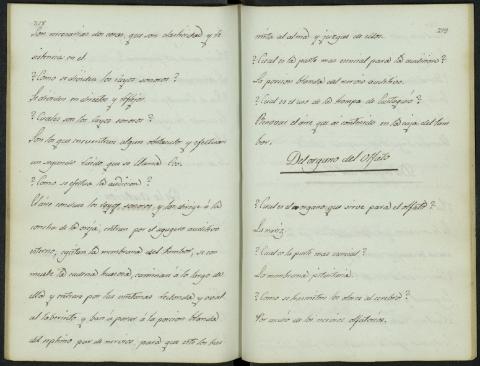 218
Son necesarias dos cosas, que son elasticidad y re
sistencia en el.
? Como se dividen los rayos sonoros ?
Se dividen en directos y reflejos.
? Cuales son los rayos sonoros ?
Son los que encuentran algun obstaculo y efectuan
un segundo sonido, que se llama Eco.
? Como se efectua la audicion ?
El aire conduce los rayos sonoros y los dirige á la
concha de la oreja, entran por el agugero auditivo
interno, agitan la membrana del tambor, se con
mueve la cadena huesosa, caminan á lo largo de
ella y entran por las ventanas redonda y oval
al laberinto y ban á parar á la porcion blanda
del septimo par de nervios, para que este los tras
219
mita al alma y juzgue de ellos.
? Cual es la parte mas esencial para la audicion ?
La porcion blanda del nervio auditivo.
? Cual es el uso de la trompa de Eustaquio ?
Renovar el aire que se contenido en la caja del tam
bor.
Del organo del Olfato
? Cual es el organo que sirve para el olfato ?
La nariz.
? Cual es la parte mas esencial ?
La membrana pituitaria.
? Como se trasmiten los olores al cerebro ?
Por medio de los nervios olfatorios.